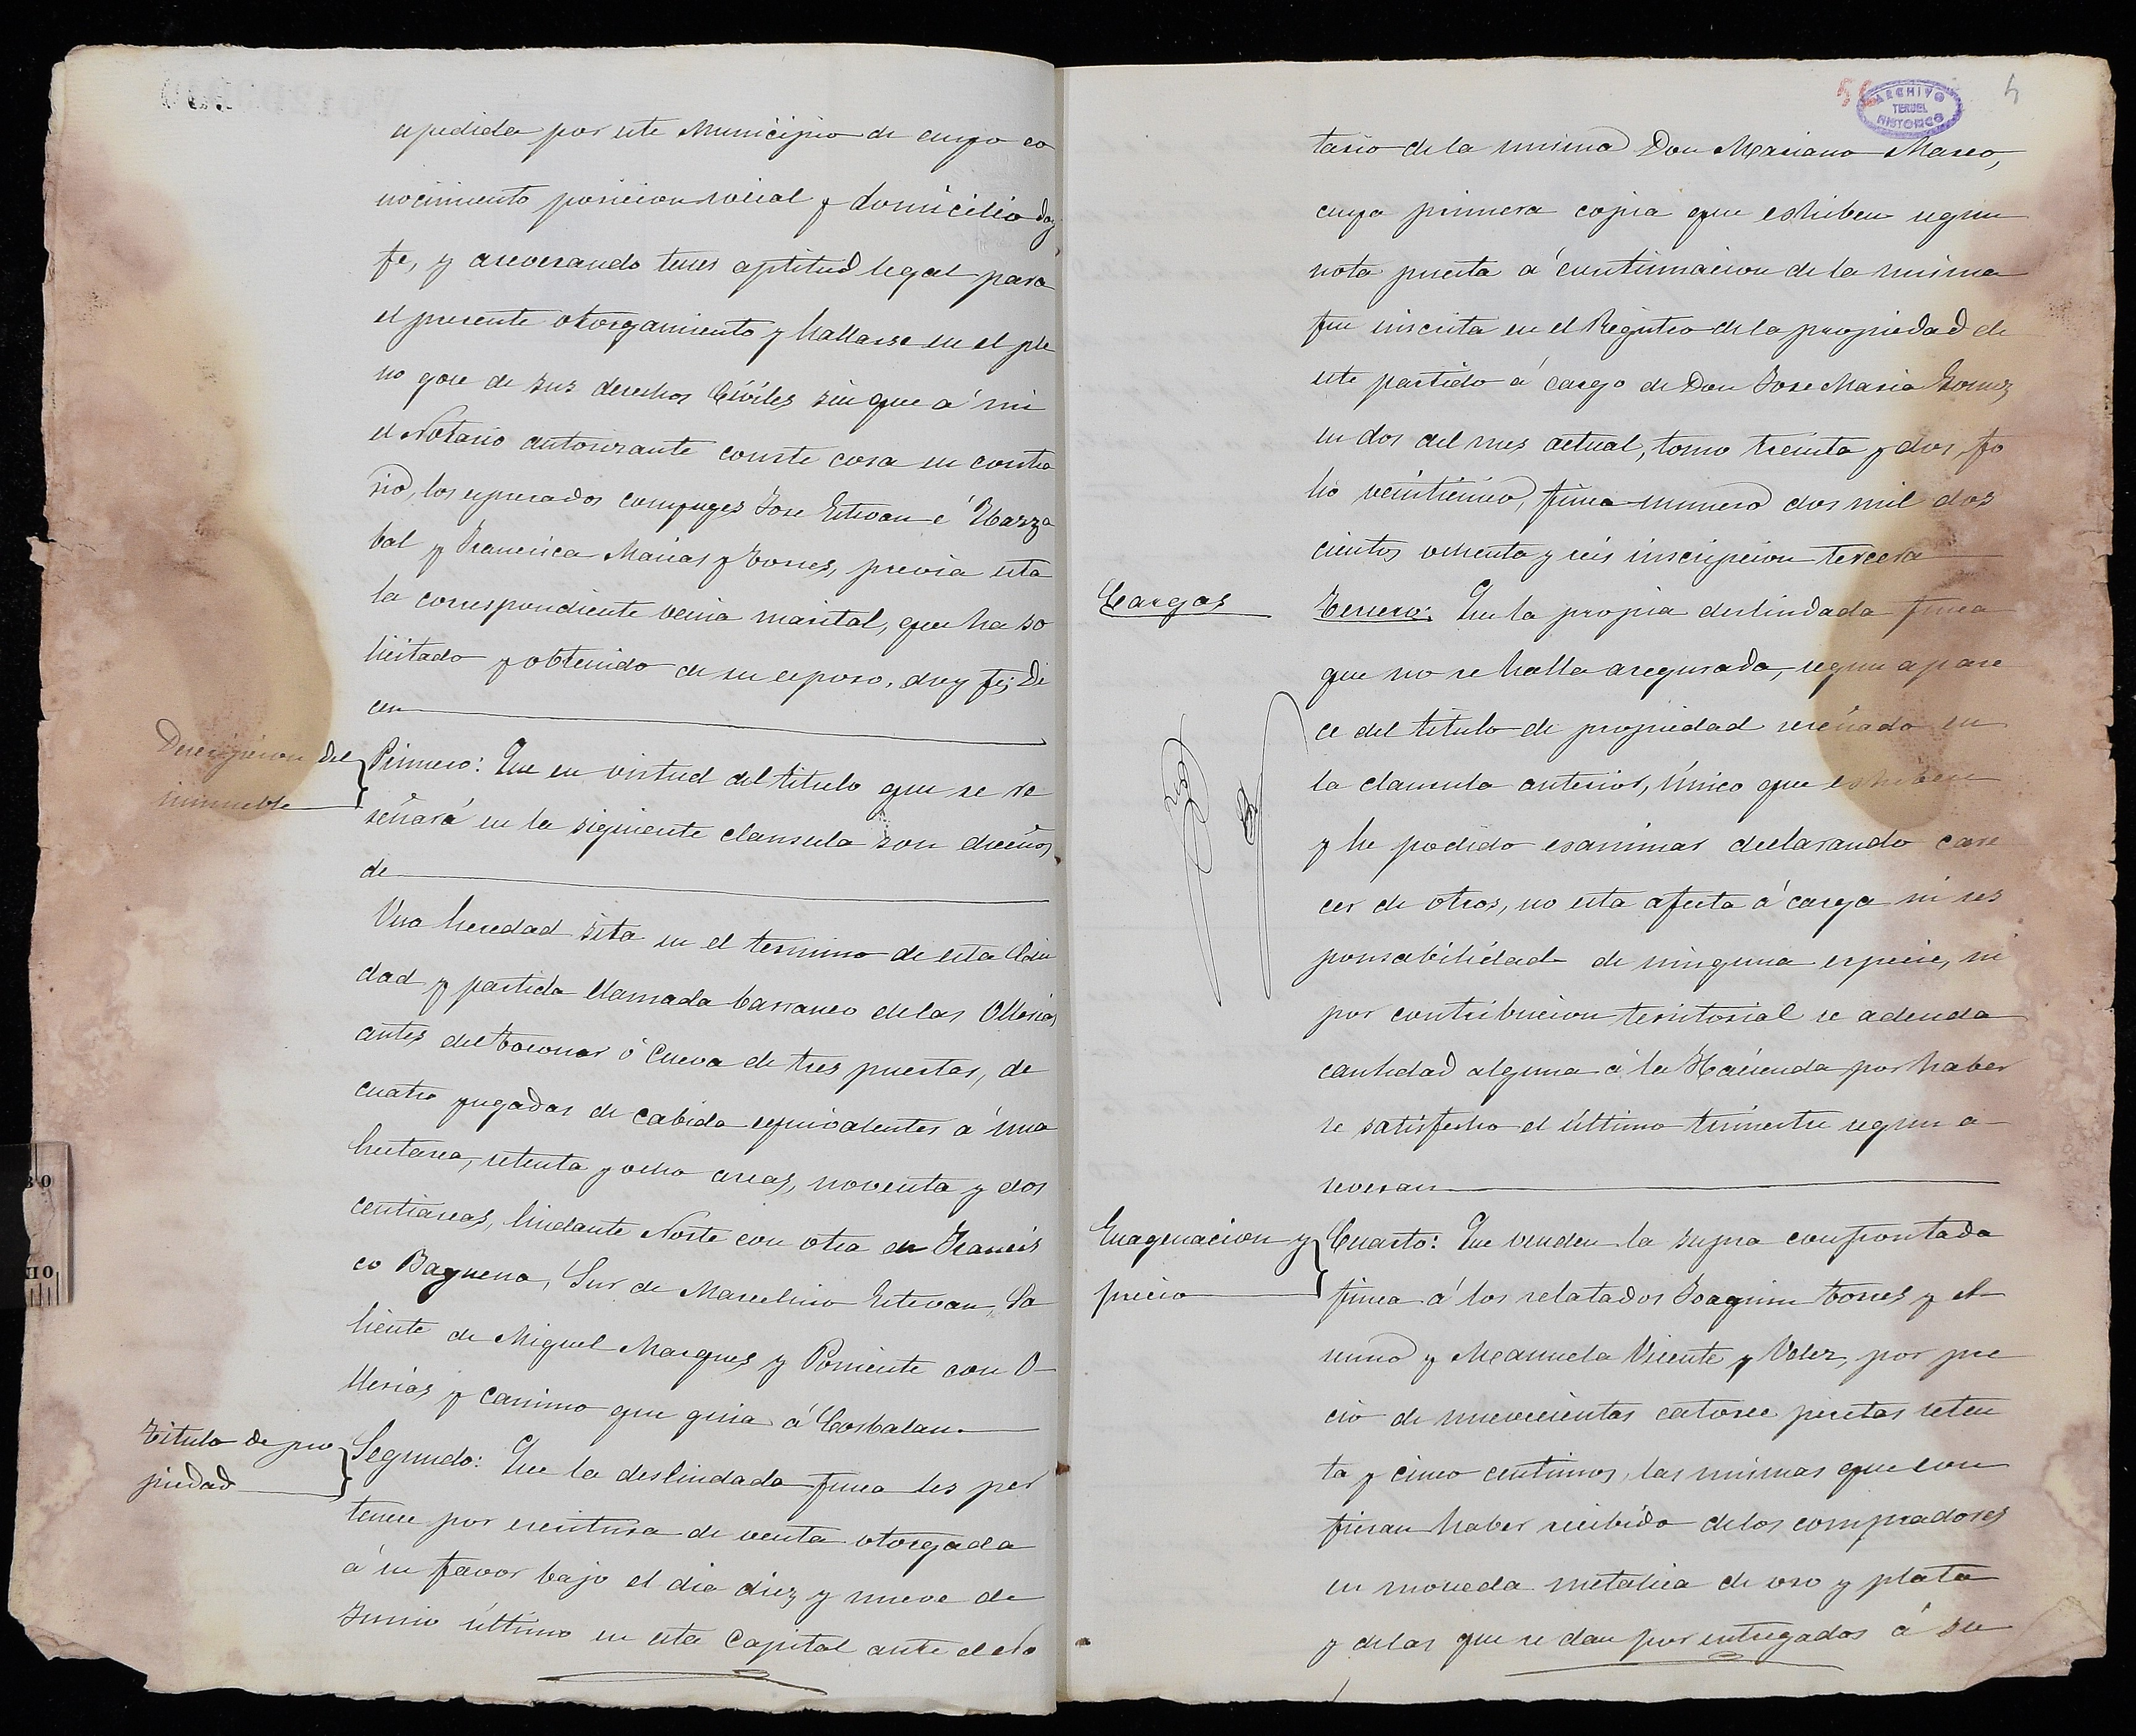 espedida por este Municipio de cuyo co
nocimiento posicion social y domicilio doy
fe, y aseverando tener aptitud legal para
el presente otorgamiento y hallarse en el ple
no goce de sus derechos Civiles sin que á mi
el Notario autorizante conste cosa en contra
rio, los espresados conyuges Jose Estevan é Ybarza
bal y Francisca Macias y Torres, previa esta
la correspondiente venia marital, que ha so
licitado y obtenido de su esposo, doy fe; Di
cen
Descripcion del
inmueble
Primero: Que en virtud del titulo que se re
señará en la siguiente clausula son dueños
de
Una heredad sita en el termino de esta Ciu
dad y partida llamada barranco de las Ollerias
antes del Toconar ó Cueva de tres puertas, de
cuatro yugadas de cabida equivalentes á una
hectarea, setenta y ocho areas, noventa y dos
centiareas, lindante Norte con otra de Francis
co Baguena, Sur de Marcelino Estevan, Sa
liente de Miguel Marques y Poniente con O
llerias y camino que guia á Corbalan.
Titulo de pro
piedad
Segundo: Que la deslindada finca les per
tenece por escritura de venta otorgada
á su favor bajo el dia diez y nueve de
Junio último en esta Capital ante el No
ARCHIVO
TERUEL
HISTORICO
4
tario de la misma Don Mariano Marco,
cuya primera copia que eshiben segun
nota puesta á continuacion de la misma
fue inscrita en el Registro de la propiedad de
este partido á cargo de Don Jose Maria Gomez
en dos del mes actual, tomo treinta y dos, fo
lio veinticinco, finca numero dos mil dos
cientos ochenta y seis inscripcion tercera
Cargas
Tercero: Que la propia deslindada finca
que no se halla asegurada, segun apare
ce del titulo de propiedad reseñado en
la clausula anterior, único que eshiben
y he podido esaminar declarando care
cer de otros, no esta afecta á carga ni res
ponsabilidad de ninguna especie, ni
por contribucion territorial se adeuda
cantidad alguna á la Hacienda por haber
se satisfecho el último trimestre segun a
severan
Enagenacion y
precio
Cuarto: Que venden la supra confrontada
finca á los relatados Joaquin Torres y el
mino y Manuela Vicente y Volez, por pre
cio de nuevecientas catorce pesetas seten
ta y cinco centimos, las mismas que con
fiesan haber recibido de los compradores
en moneda metalica de oro y plata
y de las que se dan por entregados á su